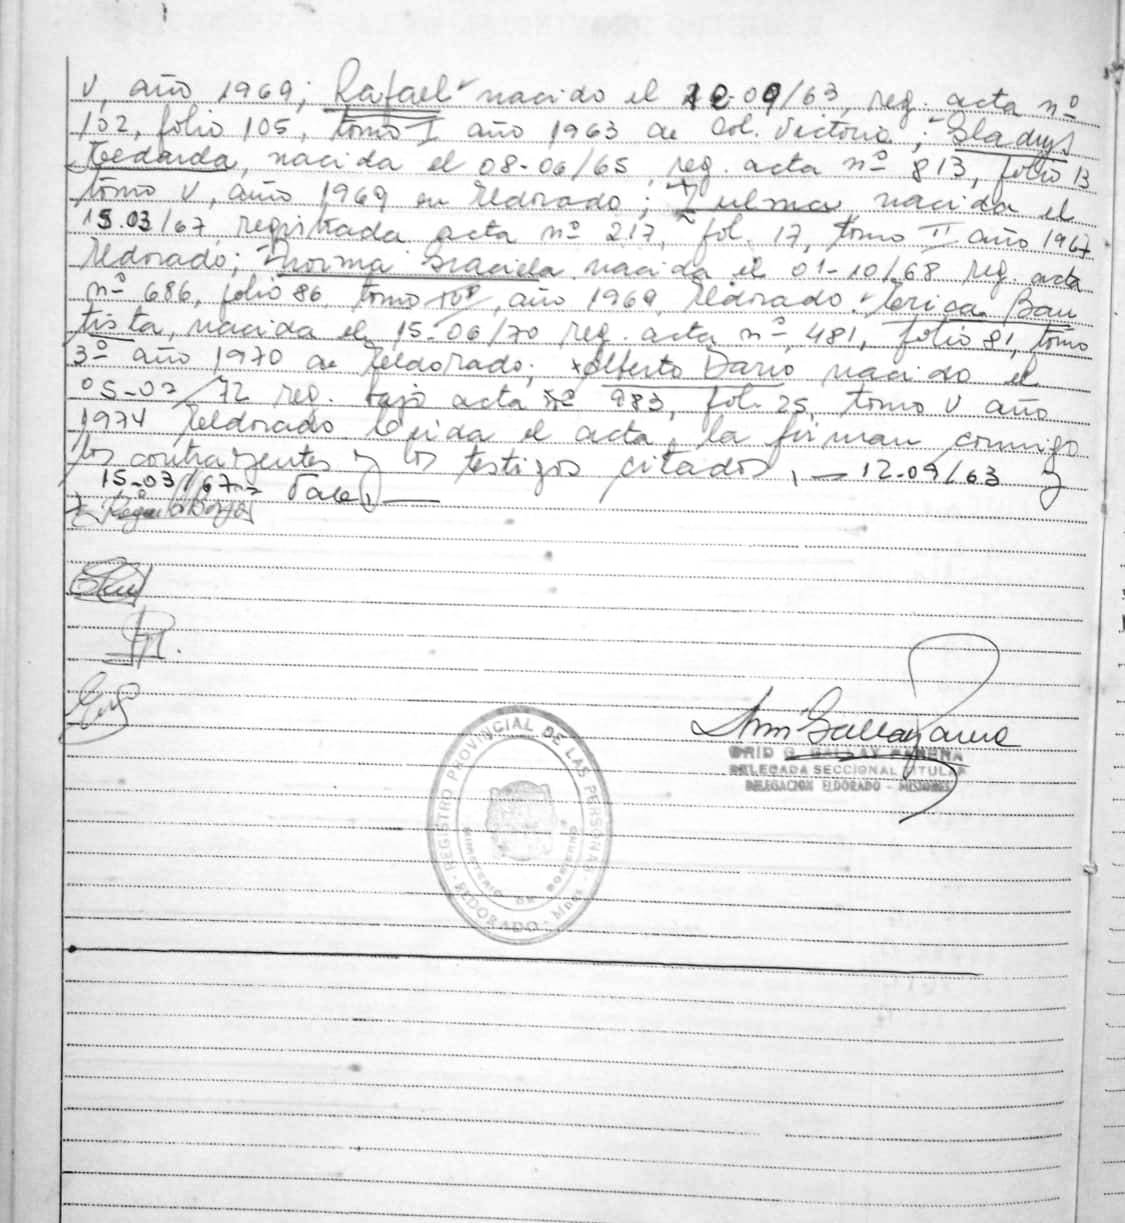 V, año 1969; Rafael nacido el 12-09/63, reg. acta nº
102, folio 105, tomo I año 1963 de Col. Victoria; Gladys
nacida el 08-06/65 reg. acta nº 813, folio 13
tomo V, año 1969 en Eldorado; Zulma nacida el
15.03/67 registrada acta nº 217, fol. 17, tomo II año 1967
Eldorado; Norma Graciela nacida el 01-10/68 reg. acta
nº 686, folio 86 tomo año 1969 Eldorado. Erica Bau
tista, nacida el 15-06/70 reg. acta nº 481, folio 81, tomo
3º año 1970 de Eldorado; Alberto Dario nacido el
05-02/72 reg. bajo acta nº 983, fol. 25, tomo V año
1974 Eldorado. Leida el acta, la firman conmigo
los contrayentes y los testigos citados, — 12-09/63 y
15-03/67 = Vale, —
GALLAY
DELEGADA SECCIONAL TITULAR
DELEGACION ELDORADO - MISIONES
REGISTRO PROVINCIAL DE LAS PERSONAS
MINISTERIO DE GOBIERNO
ELDORADO - Mnes.